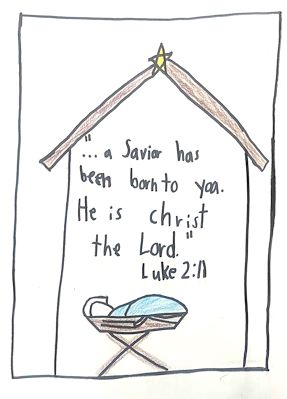 "... a Savior has
been born to you.
He is christ
the Lord."
Luke 2:11